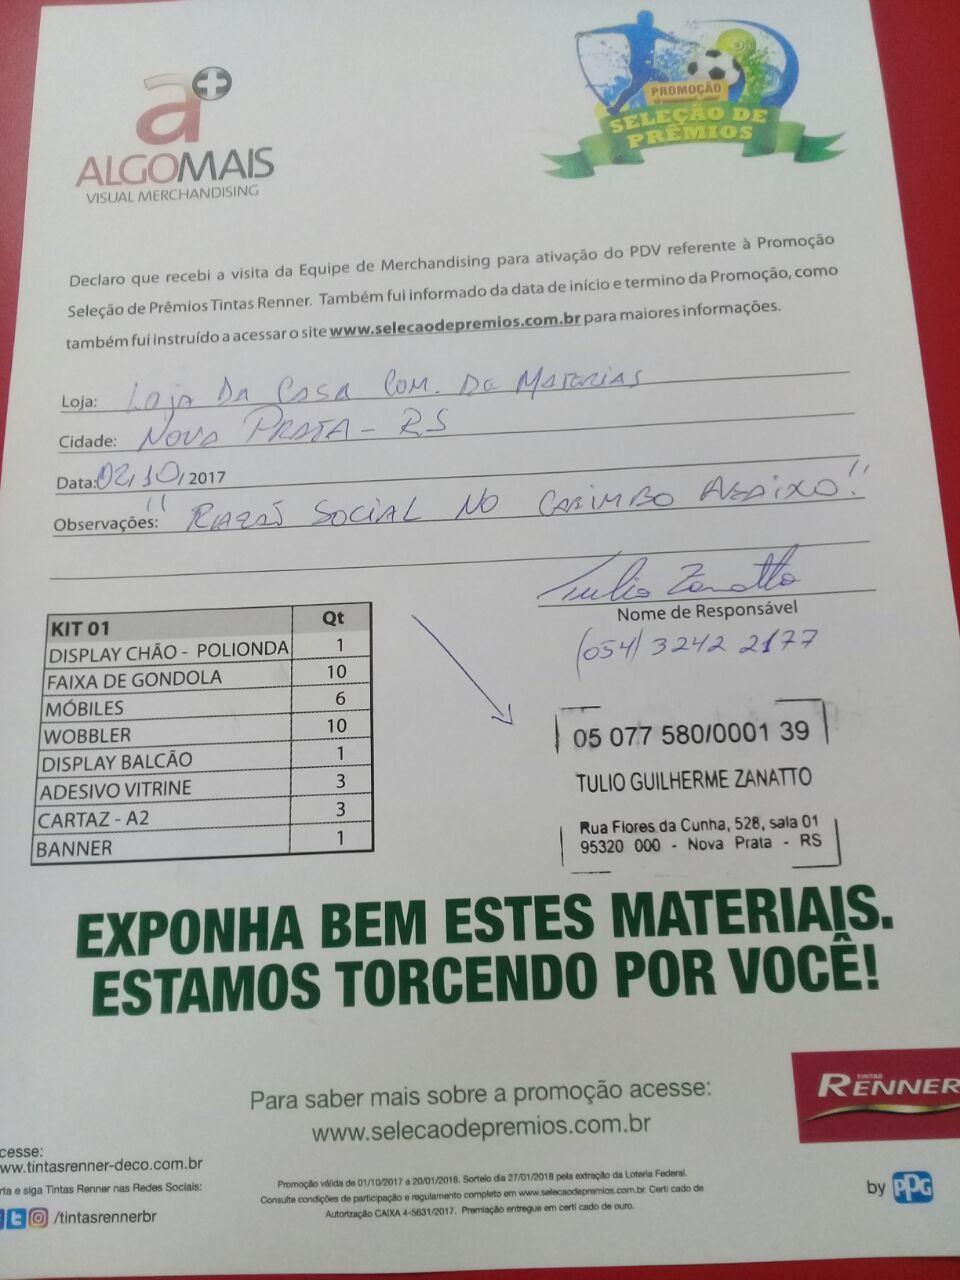 a+
ALGOMAIS
VISUAL MERCHANDISING
PROMOÇÃO
SELEÇÃO DE
PRÊMIOS
Declaro que recebi a visita da Equipe de Merchandising para ativação do PDV referente à Promoção
Seleção de Prêmios Tintas Renner. Também fui informado da data de início e termino da Promoção, como
também fui instruído a acessar o site www.selecaodepremios.com.br para maiores informações.
Loja: LOJA DA CASA COM. DE MATERIAS
Cidade: NOVA PRATA - RS
Data: 02/10/2017
Observações: "RAZAO SOCIAL NO CARIMBO ABAIXO!"
Tulio Zanatto
Nome de Responsável
(054) 3242 2177
KIT 01 Qt
DISPLAY CHÃO - POLIONDA 1
FAIXA DE GONDOLA 10
MÓBILES 6
WOBBLER 10
DISPLAY BALCÃO 1
ADESIVO VITRINE 3
CARTAZ - A2 3
BANNER 1
05 077 580/0001 39
TULIO GUILHERME ZANATTO
Rua Flores da Cunha, 528, sala 01
95320 000 - Nova Prata - RS
EXPONHA BEM ESTES MATERIAIS.
ESTAMOS TORCENDO POR VOCÊ!
Para saber mais sobre a promoção acesse:
www.selecaodepremios.com.br
TINTAS
RENNER
by PPG
cesse:
ww.tintasrenner-deco.com.br
rta e siga Tintas Renner nas Redes Sociais:
/tintasrennerbr
Promoção válida de 01/10/2017 a 20/01/2018. Sorteio dia 27/01/2018 pela extração da Loteria Federal.
Consulte condições de participação e regulamento completo em www.selecaodepremios.com.br. Certi cado de
Autorização CAIXA 4-5631/2017. Premiação entregue em certi cado de ouro.